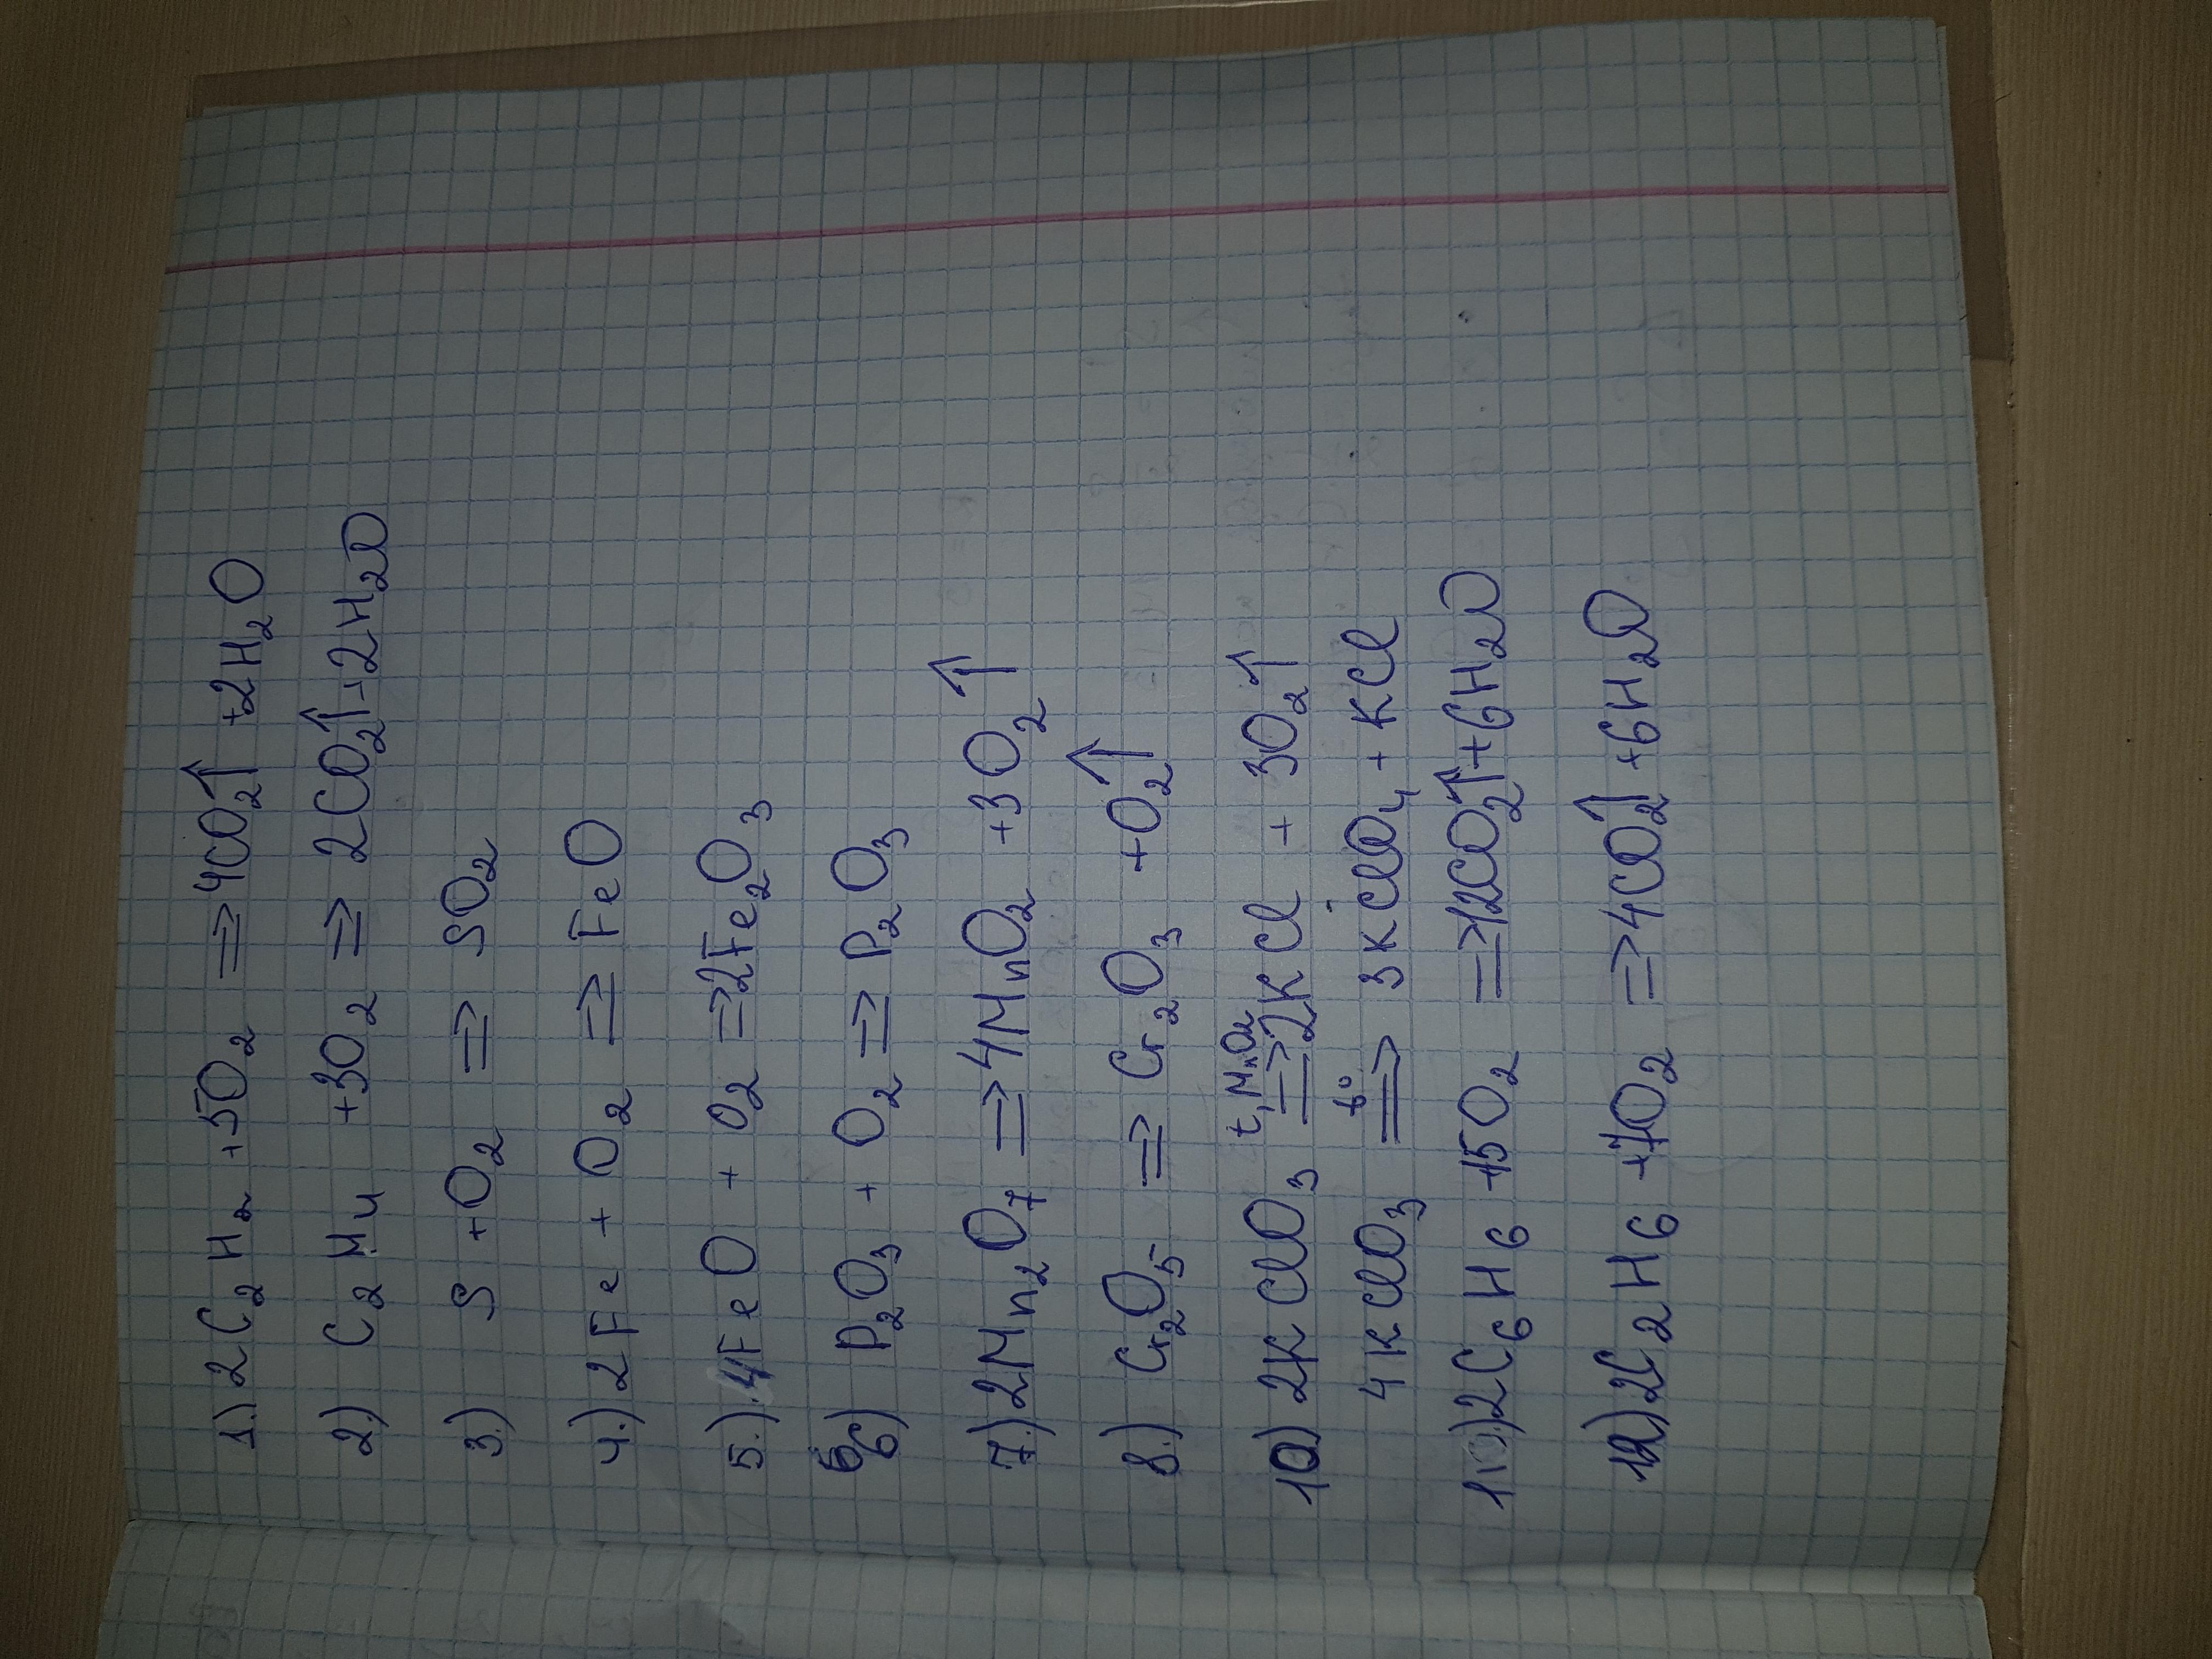 1.) 2C₂H₂ +5O₂ ⇒ 4CO₂↑ +2H₂O
2.) C₂H₄ +3O₂ ⇒ 2CO₂↑+2H₂O
3.) S +O₂ ⇒ SO₂
4.) 2Fe + O₂ ⇒ FeO
5.) 4FeO + O₂ ⇒2Fe₂O₃
6) P₂O₃ + O₂ ⇒ P₂O₃
7.) 2Mn₂O₇ ⇒ 4MnO₂ +3O₂↑
8.) Cr₂O₅ ⇒ Cr₂O₃ +O₂↑
t, MnO₂
10) 2KClO₃ ⇒ 2KCl + 3O₂↑
t°
4KClO₃ ⇒ 3KClO₄ + KCl
2C₆H₆ +15O₂ ⇒12CO₂↑+6H₂O
12) 2C₂H₆ +7O₂ ⇒ 4CO₂↑ +6H₂O